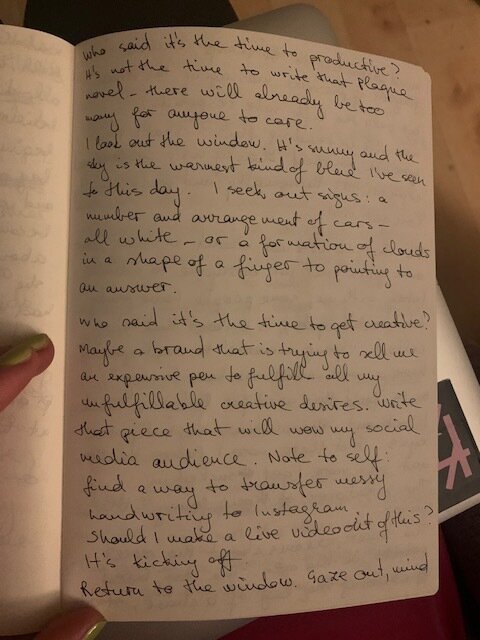 Who said it's the time to productive?
It's not the time to write that plague
novel - there will already be too
many for anyone to care.
I look out the window. It's sunny and the
sky is the warmest kind of blue I've seen
to this day. I seek out signs: a
number and arrangement of cars -
all white - or a formation of clouds
in a shape of a finger to pointing to
an answer.
Who said it's the time to get creative?
Maybe a brand that is trying to sell me
an expensive pen to fulfill all my
unfulfillable creative desires. Write
that piece that will wow my social
media audience. Note to self:
find a way to transfer messy
handwriting to Instagram
Should I make a live video out of this?
It's kicking off
Return to the window. Gaze out, mind